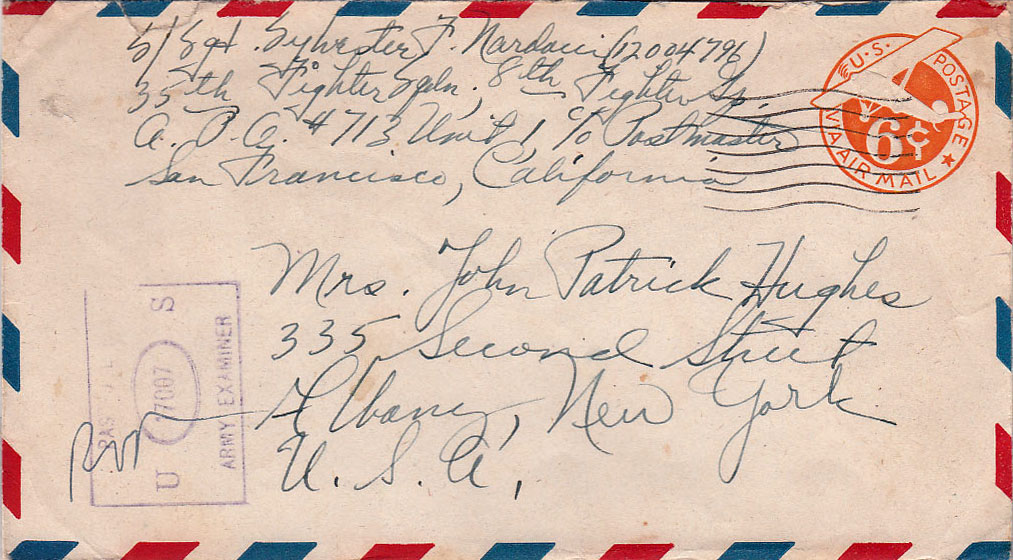 S/Sgt. Sylvester F. Nardacci (12004796)
35th Fighter Sqdn. 8th Fighter Gp.
A.P.O. #713 Unit 1, c/o Postmaster
San Francisco, California
U.S. POSTAGE
6¢
VIA AIR MAIL
Mrs. John Patrick Hughes
335 Second Street
Albany, New York
U.S.A.
U S
ARMY EXAMINER